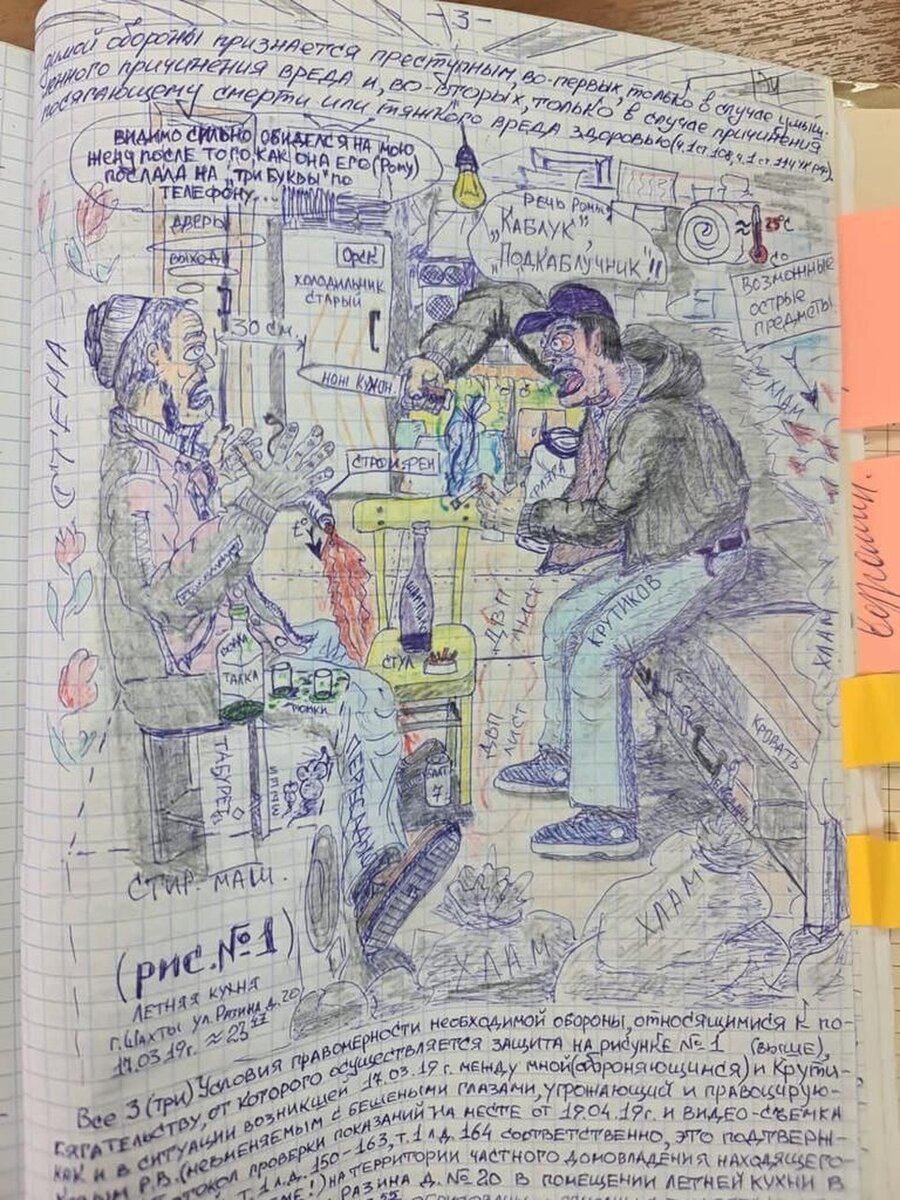 - 3 -
димой обороны признается преступным, во-первых, только в случае умыш-
ленного причинения вреда и, во-вторых, только в случае причинения
посягающему смерти или тяжкого вреда здоровью (ч.1 ст 108, ч.1 ст.114 УК РФ).
Видимо сильно обиделся на мою
жену после того, как она его (Рому)
послала на "три буквы" по
телефону...
Речь Ромы
„Каблук",
„Подкаблучник"!!
≈ 25°C
Дверь
Выход
Орск
холодильник
старый
30 см.
Нож кухон.
Возможные
острые
предметы
Хлам
Стена
Строй. фен
t°
Крутиков
ДВП
лист
Стул
Рюмки
Табурет
ДВП
лист
Кровать
Хлам
Стир. маш.
Хлам
Хлам
(рис. №1)
Летняя кухня
г. Шахты ул. Разина д. 20
17.03.19г. ≈ 23
Все 3 (три) Условия правомерности необходимой обороны, относящимися к по-
сягательству, от которого осуществляется защита на рисунке №1 (выше),
как и в ситуации возникшей 17.03.19 г. между мной (обороняющимся) и Крути-
Р.В. (невменяемым с бешеными глазами, угрожающий и правоцирую-
протокол проверки показаний на месте от 19.04.19г. и видео-съёмка
т. 1 л.д. 150-163, т. 1 л.д. 164 соответственно, это подтверж-
на территории частного домовладения находящего-
Разина д. №20 в помещении летней кухни в